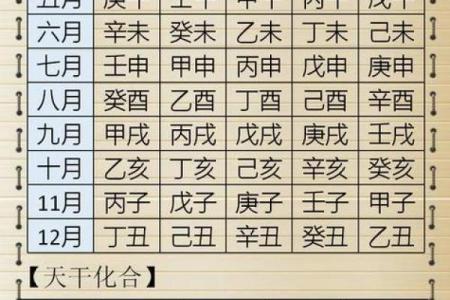 六月 辛未 癸未 乙未 丁未 己未
七月 壬申 甲申 丙申 戊申 庚申
八月 癸酉 乙酉 丁酉 己酉 辛酉
九月 甲戌 丙戌 戊戌 庚戌 壬戌
十月 乙亥 丁亥 己亥 辛亥 癸亥
11月 丙子 戊子 庚子 壬子 甲子
12月 丁丑 己丑 辛丑 癸丑 乙丑
【天干化合】